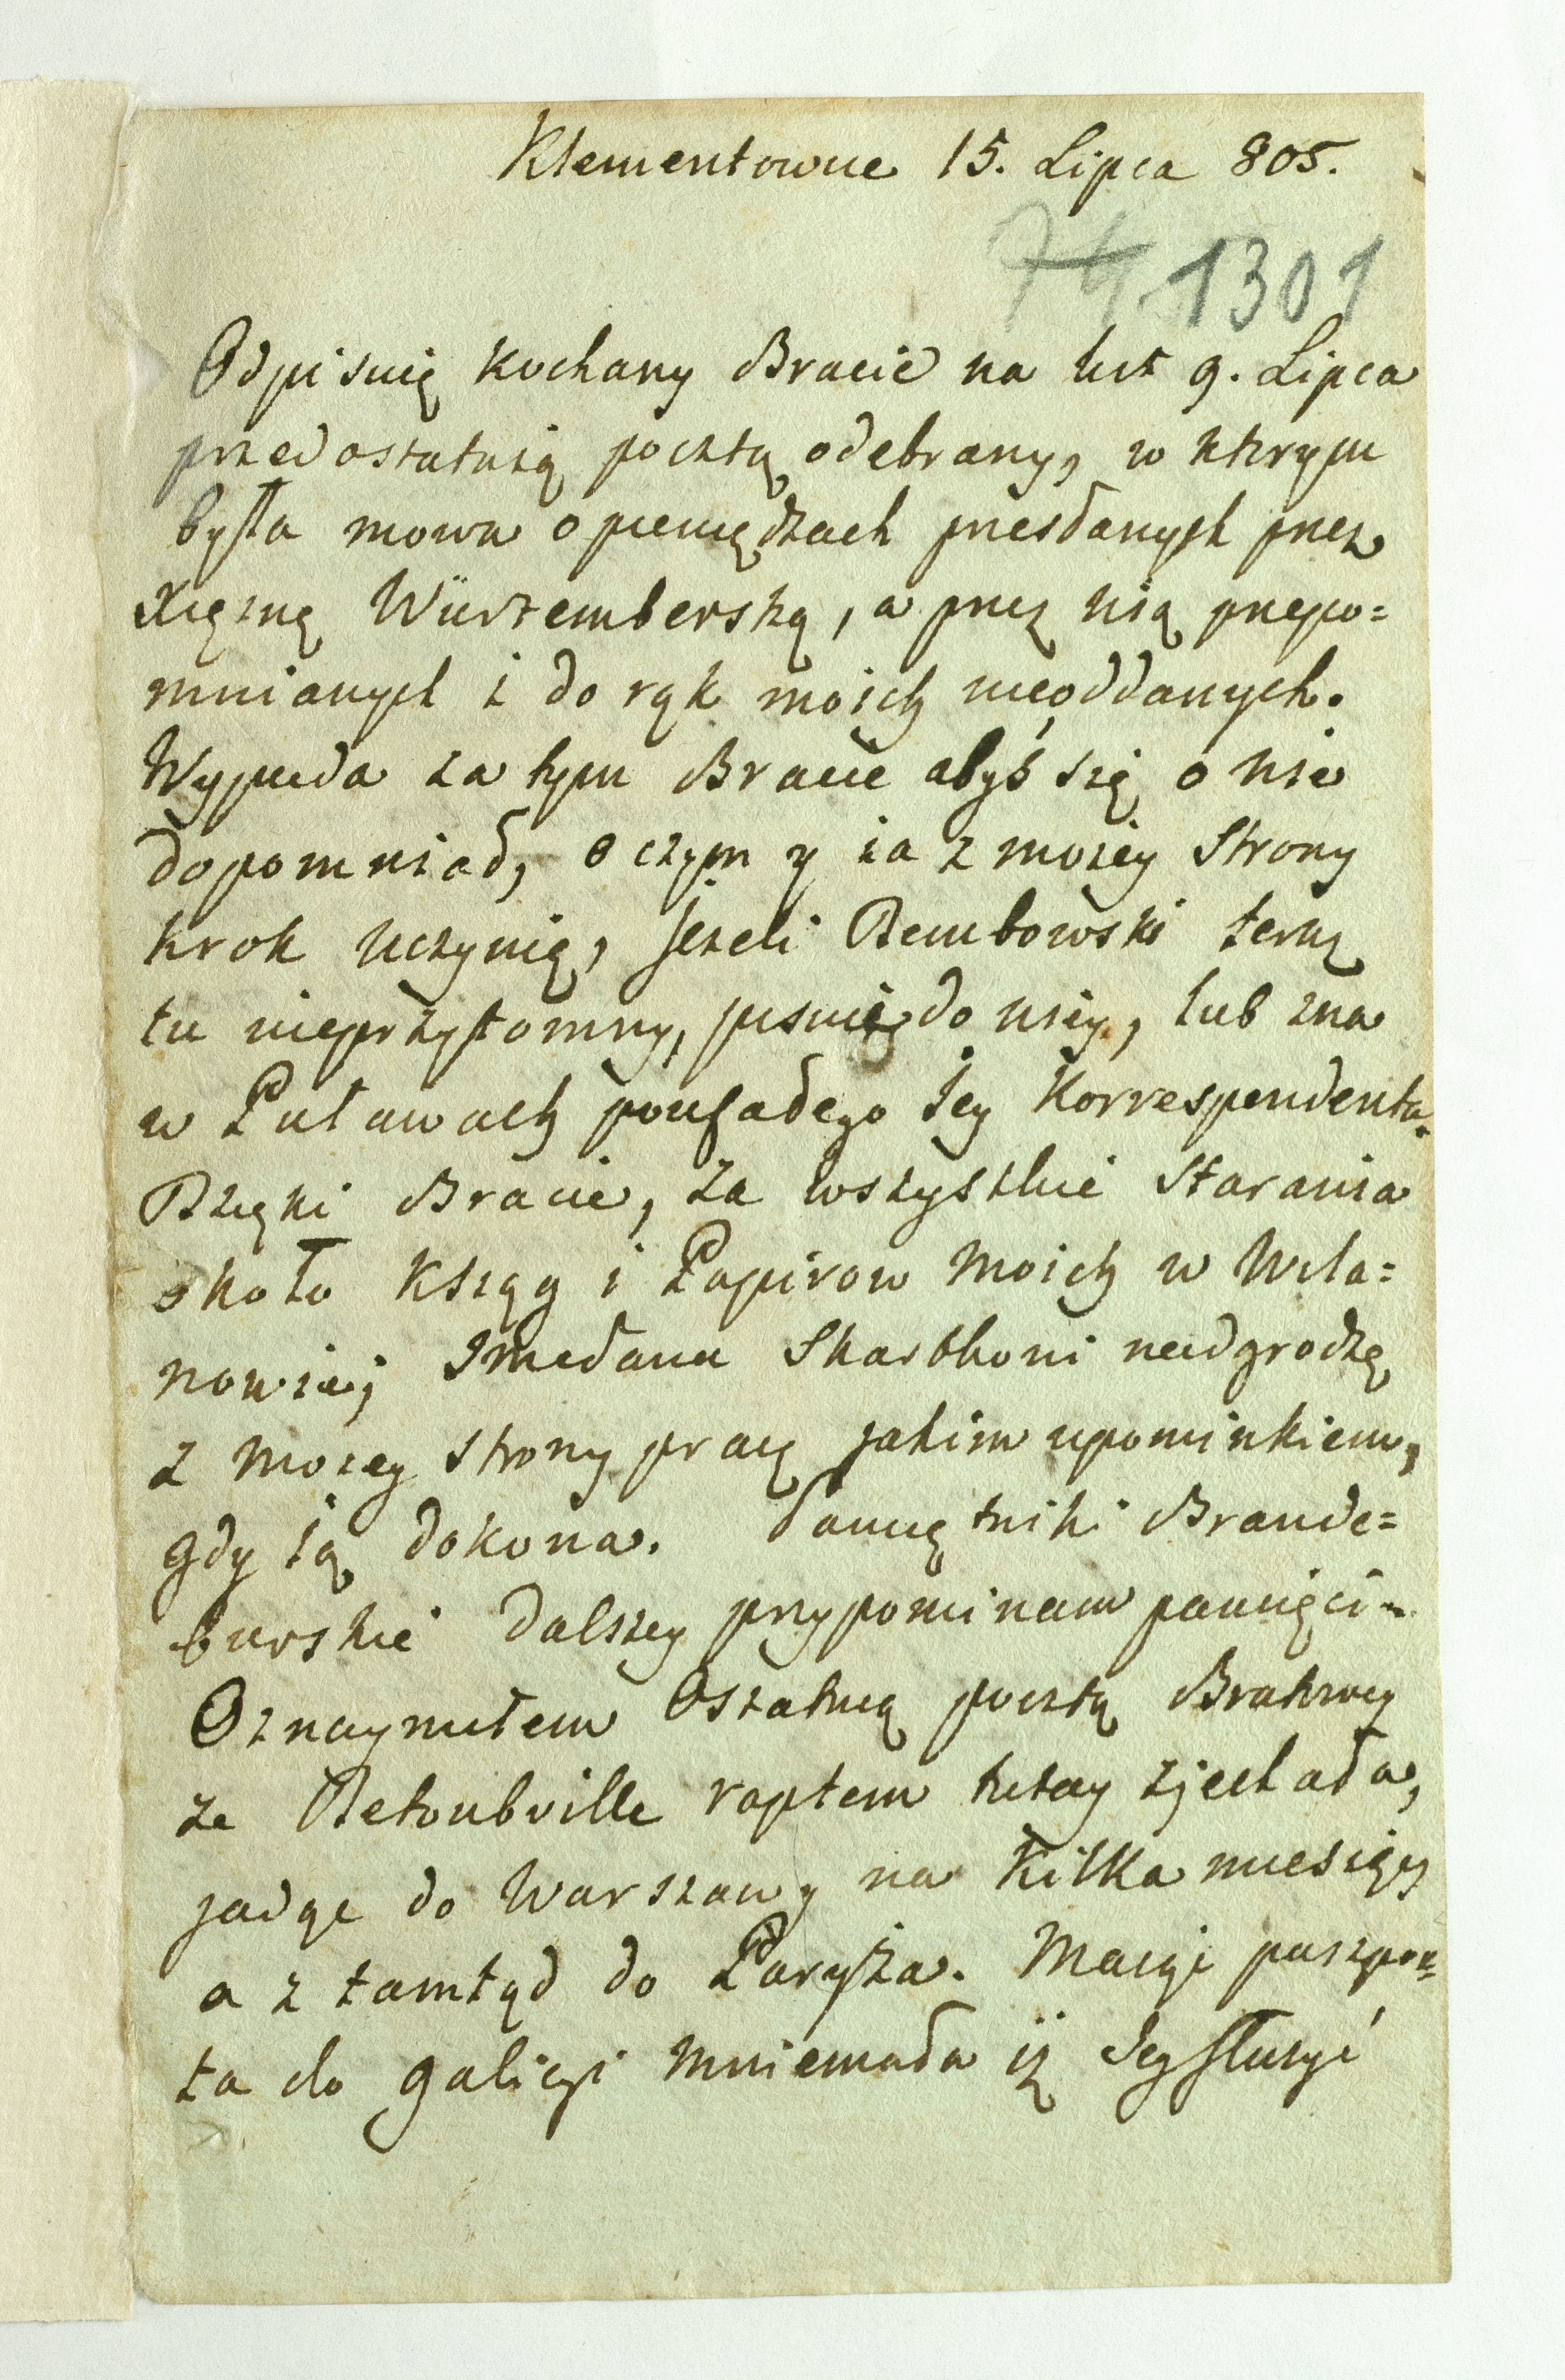 Klementowice 15. Lipca 805.
74 1301
Odpisuię kochany Bracie na list 9. Lipca
przedostatnią pocztą odebrany, w ktrym
była mowa o pieniędzach przesłanych przez
Xiężnę Würtemberską, a przez nią przepo=
mnianych i do rąk moich nieoddanych.
Wypada za tym Bracie abyś się o nie
dopomniał, o czym y ia z moiey strony
krok uczynię, jeżeli Dembowski teraz
tu nieprzytomny, pisuię do niey, lub zna
w Puławach poufałego Jey Korrespondenta.
Dzięki Bracie, za wszystkie starania
około Ksiąg i Papirow moich w Wila=
nowie; Imć Pana Skarbhoni nadgrodzę
z moiey strony pracę jakim upominkiem,
gdy ią dokona. Pamiętniki Brande=
burskie dalszey przypominam pamięci -
Oznaymiłem ostatnią pocztą Bratowey
że Detoubville raptem tutay zjechała,
jadąc do Warszawy na kilka miesięcy
a z tamtąd do Paryża. Maiąc paszpor=
ta do Galicyi mniemała iż Jey służyć